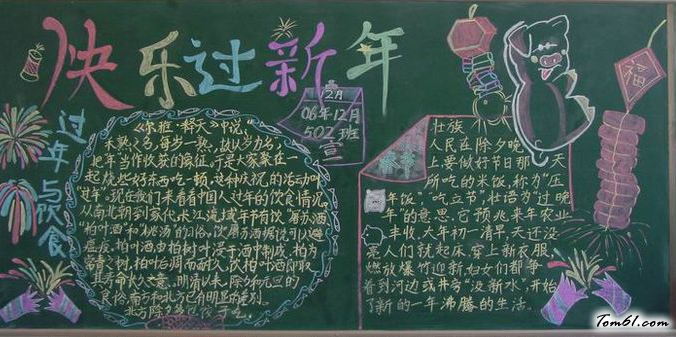 快乐过新年
2月
06年12月
502班
宣
过年与饮食
《尔雅·释天》中说,
禾熟之名,每岁一熟,故以岁为名,
把年当作收获的象征,于是大家聚在一
起烧些好东西吃一顿,这种庆祝的活动叫
过年。现在我们来看看中国人过年的饮食情况。
从南北朝到宋代长江流域年节有饮"屠苏酒
柏叶酒和桃汤"的习俗,饮屠苏酒据说可以避
瘟疫,柏叶酒由柏树叶浸于酒中制成,柏为
常青之树,柏叶后凋而耐久,饮柏叶酒自取
其寿命长久之意。明清以来,除夕和元旦的
食俗南方和北方已有明显的差别。
北方除夕
壮族
人民在除夕晚
上要做好节日那一天
所吃的米饭,称为"压
年饭","吃立节",壮语为"过晚
年"的意思,它预兆来年农业
丰收,大年初一清早,天还没
亮人们就起床,穿上新衣服
燃放爆竹迎新,妇女们都争
着到河边或井旁"汲新水",开始
了新的一年沸腾的生活。
春节
福
Tom61.com